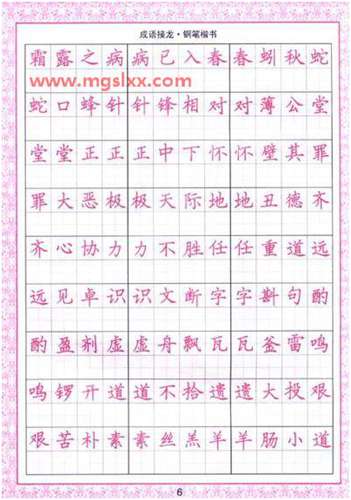 成语接龙·钢笔楷书
霜露之病病已入春春蚓秋蛇
www.mgslxx.com
蛇口蜂针针锋相对对薄公堂
堂堂正正正中下怀怀壁其罪
罪大恶极极天际地地丑德齐
齐心协力力不胜任任重道远
远见卓识识文断字字斟句酌
酌盈剂虚虚舟飘瓦瓦釜雷鸣
鸣锣开道道不拾遗遗大投艰
艰苦朴素素丝羔羊羊肠小道
6